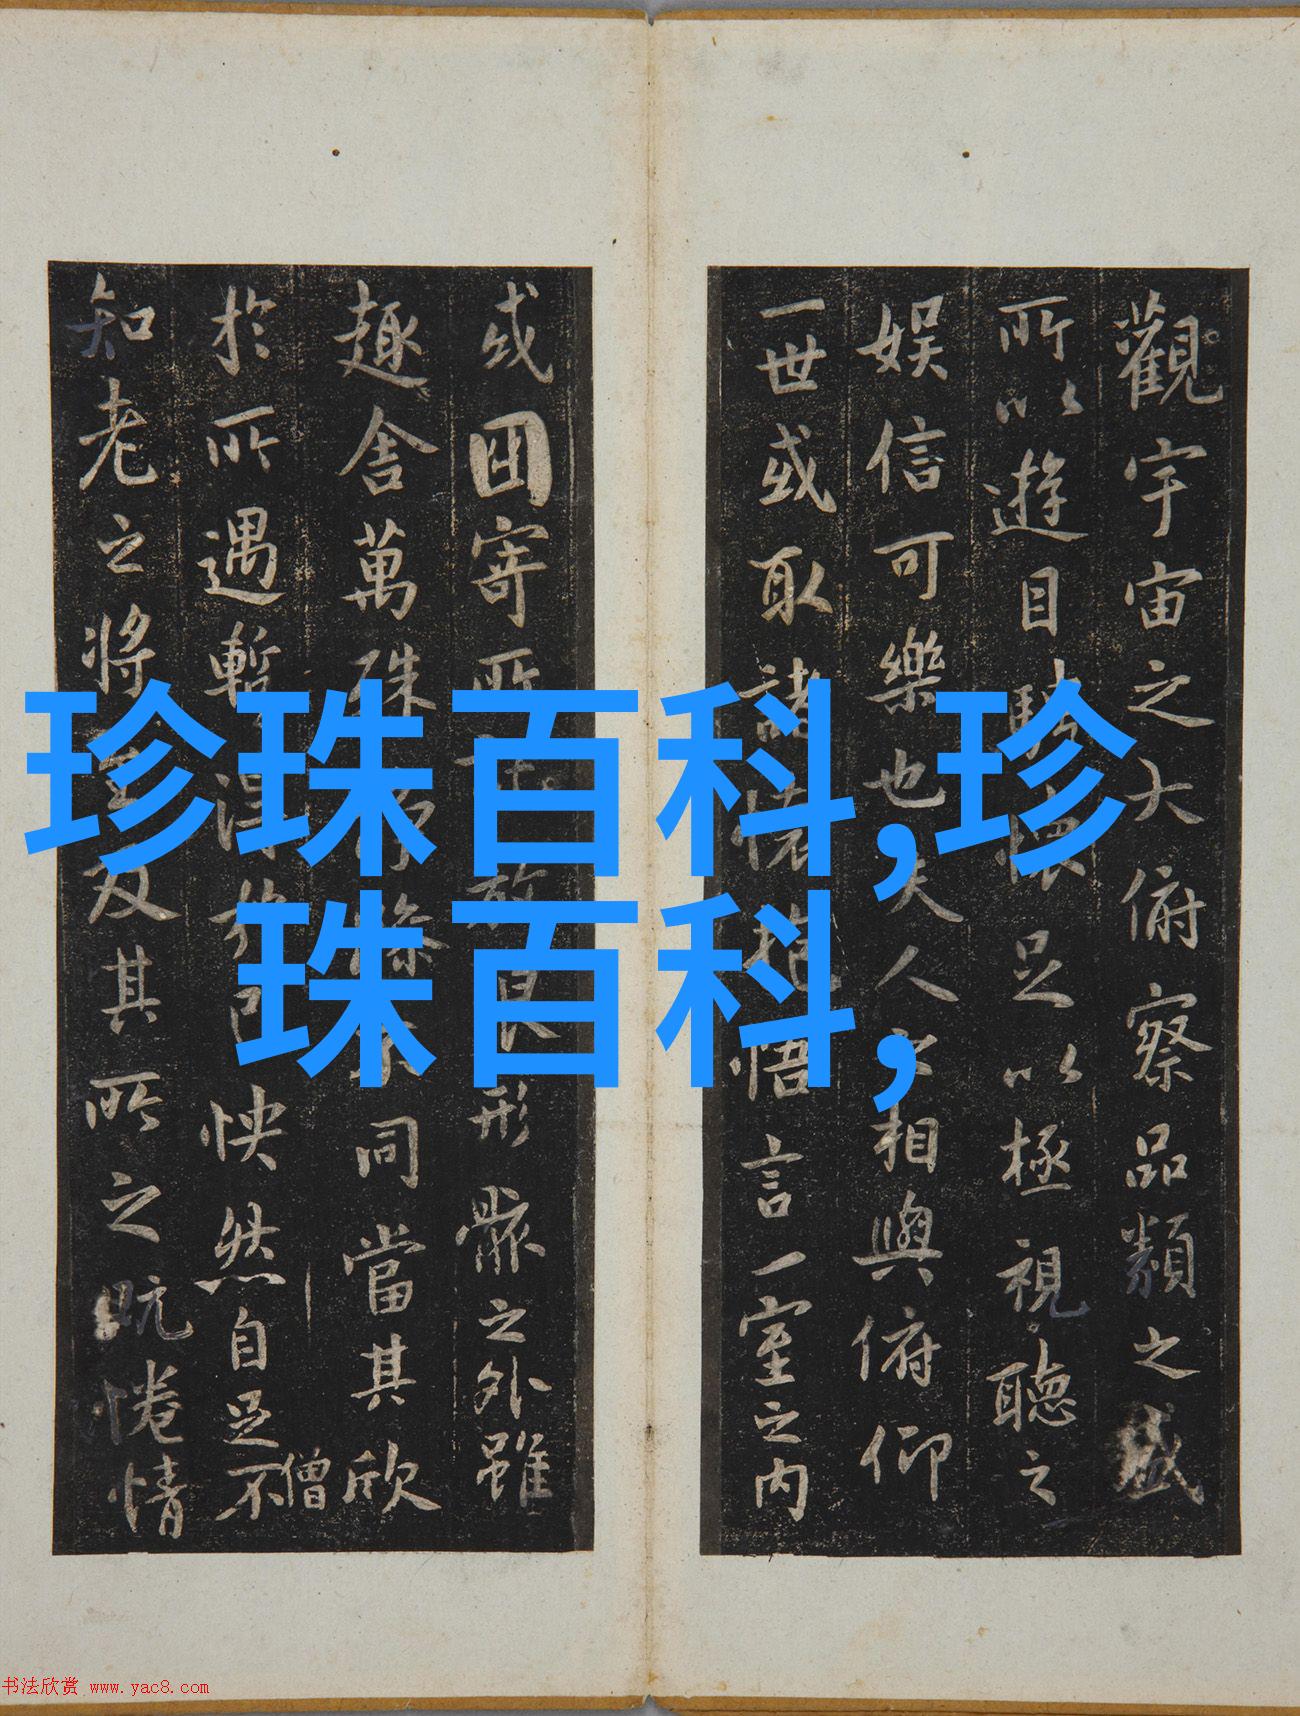 珍珠百科,珍
珠百科,
觀宇宙之大俯察品類之盛
所以遊目騁懷足以極視聽之
娛信可樂也夫人之相與俯仰
一世或取諸懷抱悟言一室之内
或因寄所放浪形骸之外雖
趣舍萬殊靜躁不同當其欣
僧
於所遇暫得於己怏然自足不
知老之將至及其所之既惓情
书法欣赏 www.yac8.com